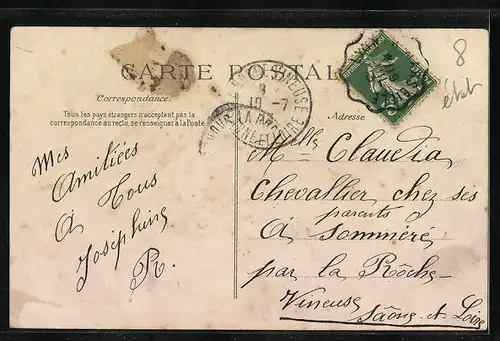 CARTE POSTALE
Correspondance.
Tous les pays étrangers n'acceptent pas la
correspondance au recto, se renseigner à la Poste
Adresse
8
Mes
Amitiées
A Tous
Joséphine
R.
Melle Claudia
Chevallier chez ses
parents
A Sommeré
par la Rôche
Vineuse Saône-et-Loire
8
10 - 7
VINEUSE
SAONE-ET-LOIRE